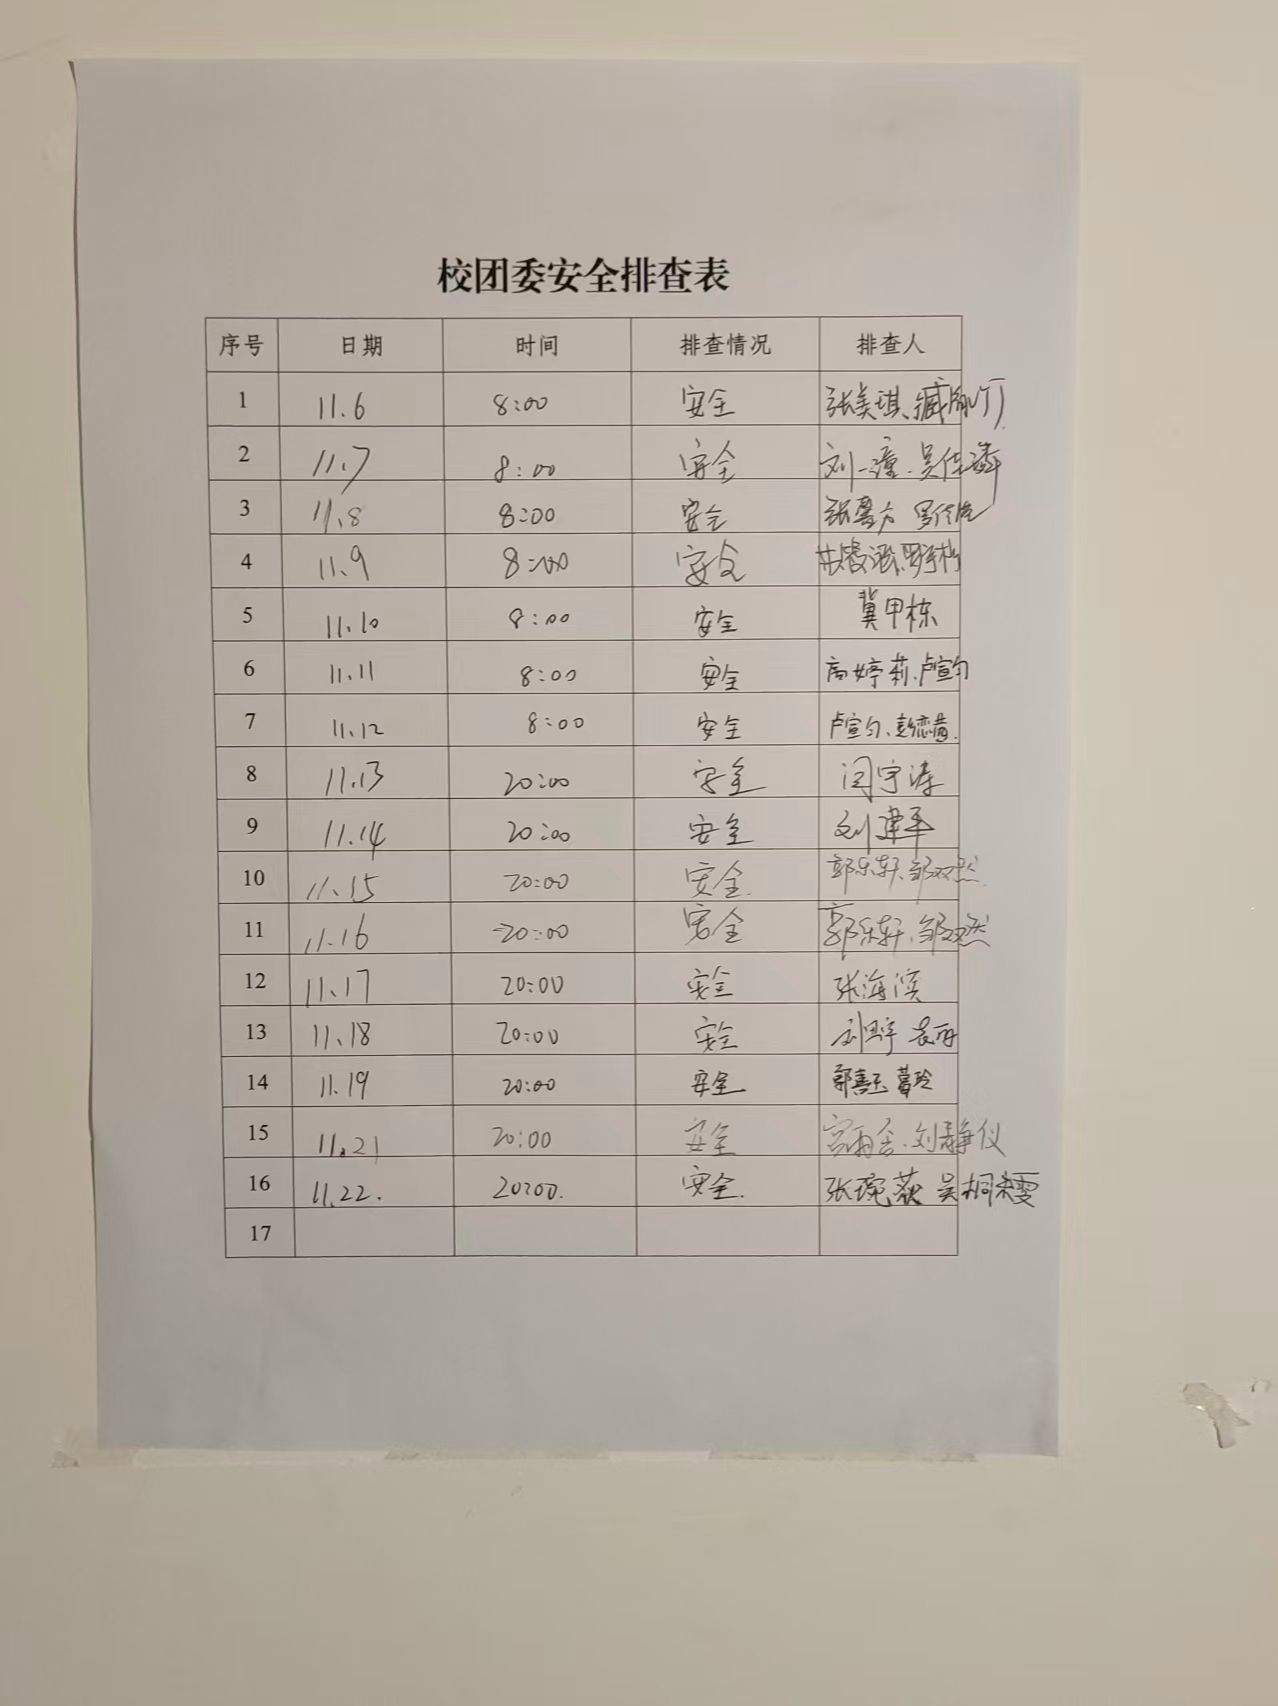 校团委安全排查表
序号 日期 时间 排查情况 排查人
1 11.6 8:00 安全 张美琪、臧
2 11.7 8:00 安全 刘一潼、吴佳
3 11.8 8:00 安全 张馨方
4 11.9 8:00 安全
5 11.10 8:00 安全 冀甲栋
6 11.11 8:00 安全 高婷莉、卢宣匀
7 11.12 8:00 安全 卢宣匀、彭
8 11.13 20:00 安全 闫宇涛
9 11.14 20:00 安全 刘建平
10 11.15 20:00 安全 郭乐轩、邹双然
11 11.16 20:00 安全 郭乐轩、邹双然
12 11.17 20:00 安全 张海滨
13 11.18 20:00 安全
14 11.19 20:00 安全 葛玲
15 11.21 20:00 安全 宫雨含、刘静仪
16 11.22. 20:00. 安全. 张琬荻 吴桐
17